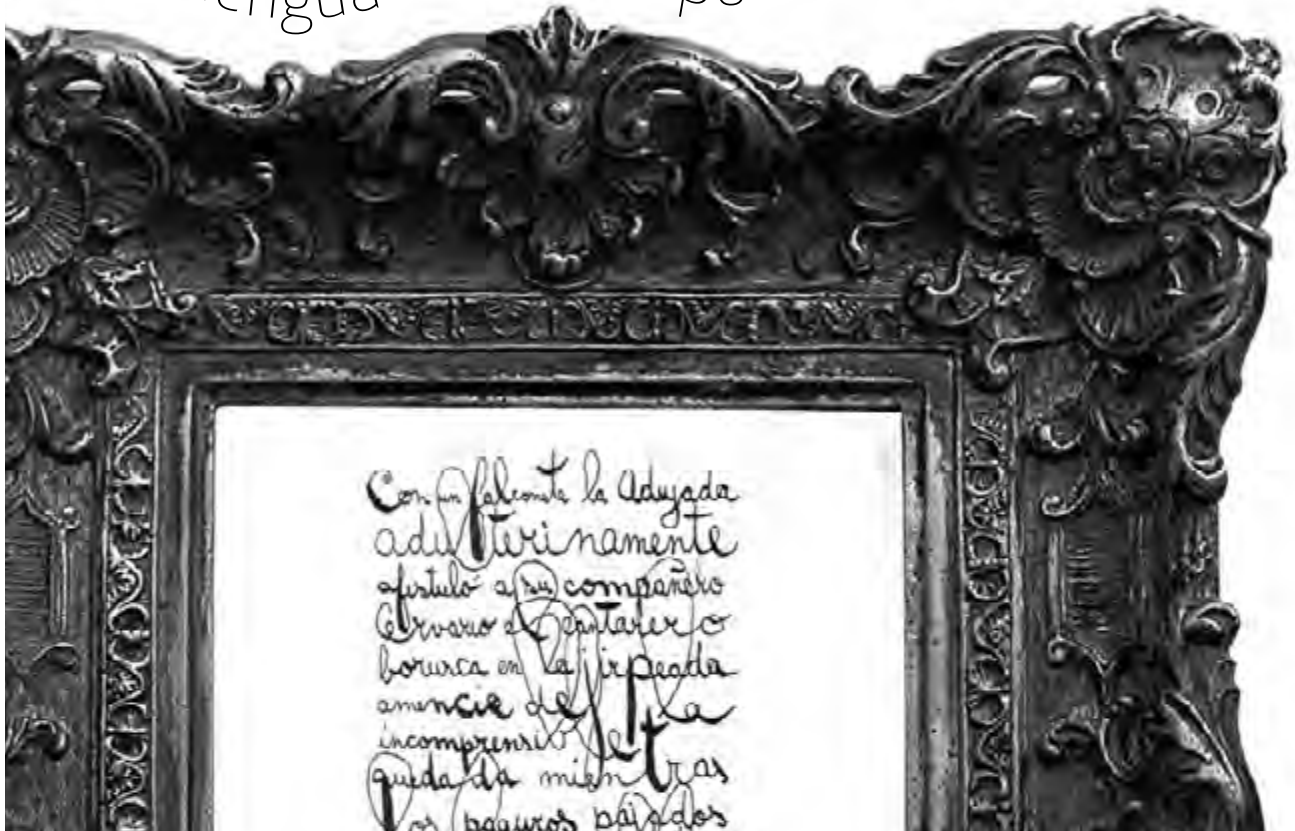 engua
Con un falconete la adujada
adulterinamente
afistuló a su compañero
Cervario el cantarero
borusca en la jirpeada
amencia de la
incomprensi
quedada mientras
los paguros pajados